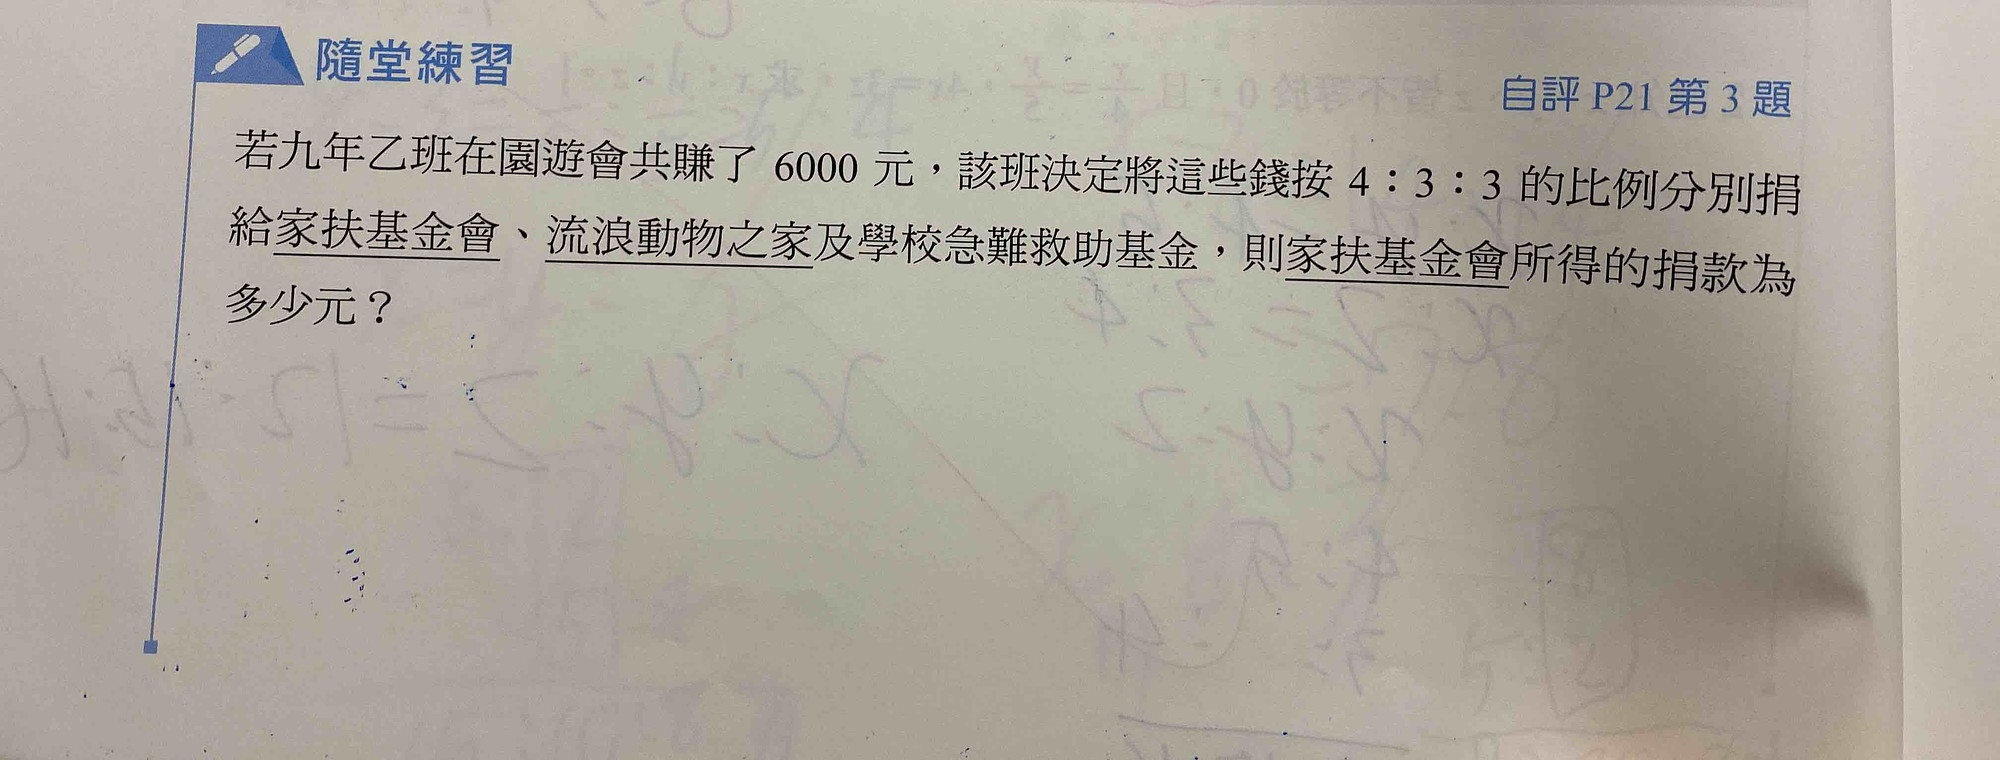 隨堂練習
自評 P21 第 3 題
若九年乙班在園遊會共賺了 6000 元，該班決定將這些錢按 4：3：3 的比例分別捐
給家扶基金會、流浪動物之家及學校急難救助基金，則家扶基金會所得的捐款為
多少元？